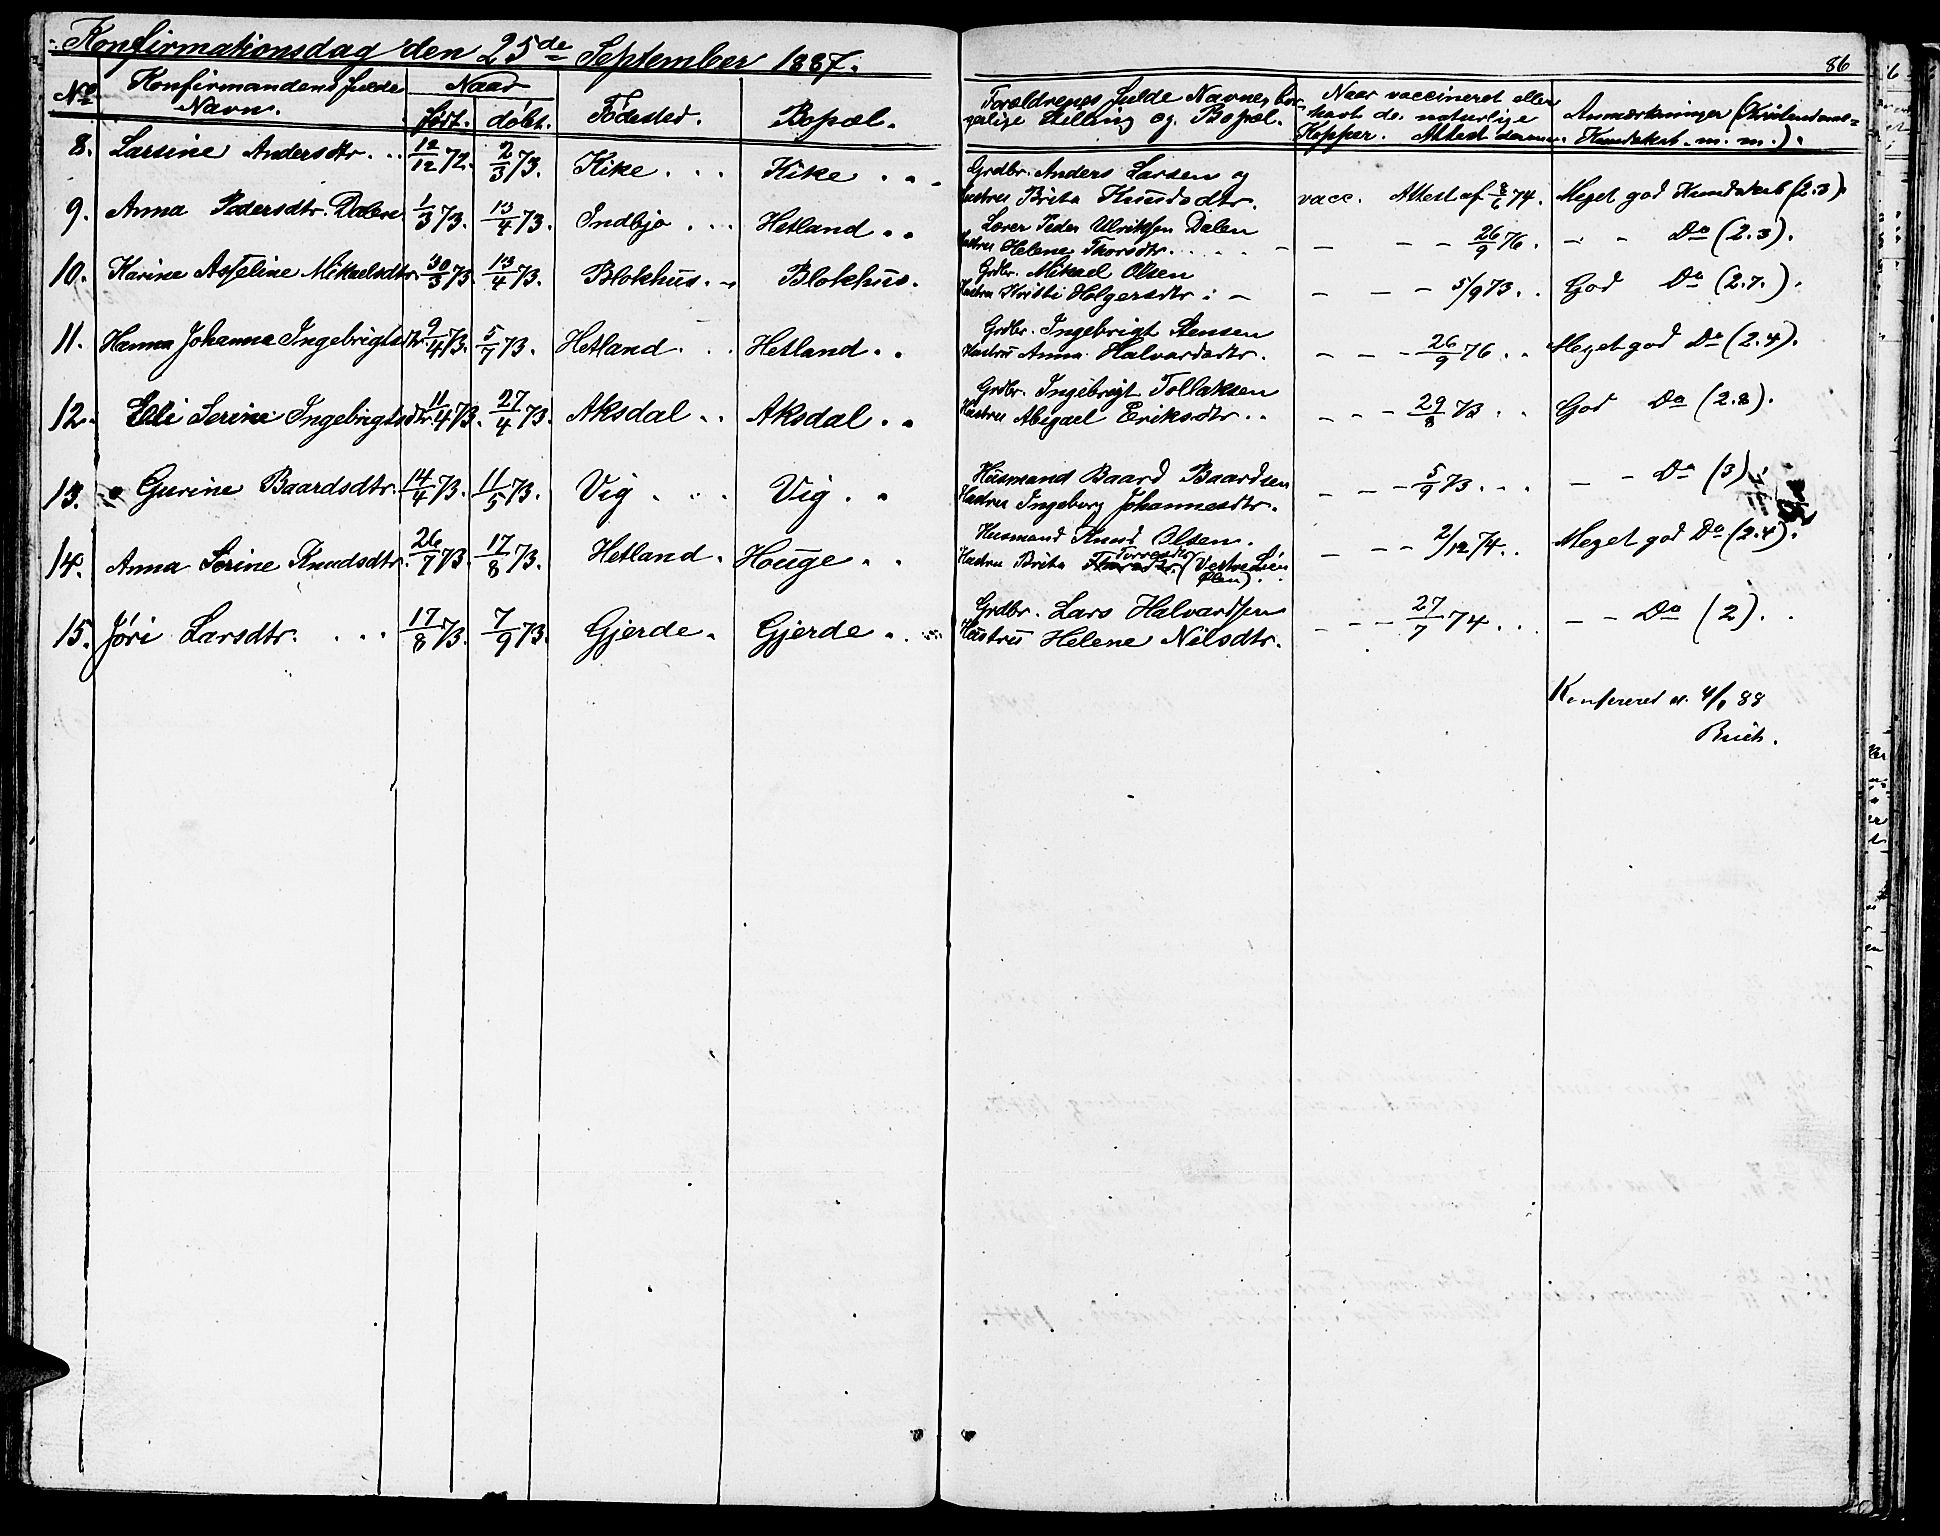 Konfirmationsdag den 25de September 1887.
86
No Konfirmandens fulde Navn. Naar født. døbt. Fødested. Bopæl. Forældrenes fulde Navne, bor-
gerlige Stilling og Bopæl. Naar vaccineret eller
havt de naturlige
Kopper. Attest derom. Anmærkninger (Kristendoms-
Kundskab. m. m.).
8. Larsine Andersdtr. 12/12 72. 2/3 73. Kike Kike Grdbr. Anders Larsen og
Hustru Brita Knudsdtr. vacc. Attest af 8/6 74. Meget god Kundskab (2.3).
9. Anna Pedersdtr. Dalen 1/3 73. 13/4 73. Indbjo Hetland Lærer Peder Ulriksen Dalen
Hustru Helene Thorsdtr. - - - - 26/9 76. - - Do (2.3).
10. Karine Asseline Mikaelsdtr. 30/3 73. 13/4 73. Blokhus. Blokhus. Grdbr. Mikael Olsen
Hustru Kristi Holgersdtr. - - - - 5/9 73. God Do (2.7.).
11. Hanna Johanna Ingebrigtsdtr. 9/4 73. 5/7 73. Hetland Hetland Grdbr. Ingebrigt Stensen
Hustru Anna Halvardsdtr. - - - 26/9 76. Meget god Do (2.4).
12. Elli Serine Ingebrigtsdtr. 11/4 73. 27/4 73. Aksdal Aksdal Grdbr. Ingebrigt Tollaksen
Hustru Abigael Eriksdtr. - - - 29/8 73. God Do (2.8).
13. Gurine Baardsdtr. 14/4 73. 11/5 73. Vig Vig Husmand Baard Baardsen
Hustru Ingeborg Johannesdtr. - - - 5/9 73. - - Do (3).
14. Anna Serine Knudsdtr. 26/7 73. 17/8 73. Hetland Houge Husmand Knud Olsen.
Hustru Brita Torresdtr. (Vestre Lien
Ølen) - - - 2/12 74. Meget god Do (2.4).
15. Jøri Larsdtr. 17/8 73. 7/9 73. Gjerde Gjerde Grdbr. Lars Halvardsen
Hustru Helene Nilsdtr. - - - 27/7 74. - - Do (2).
Konfereret d. 4/1 88